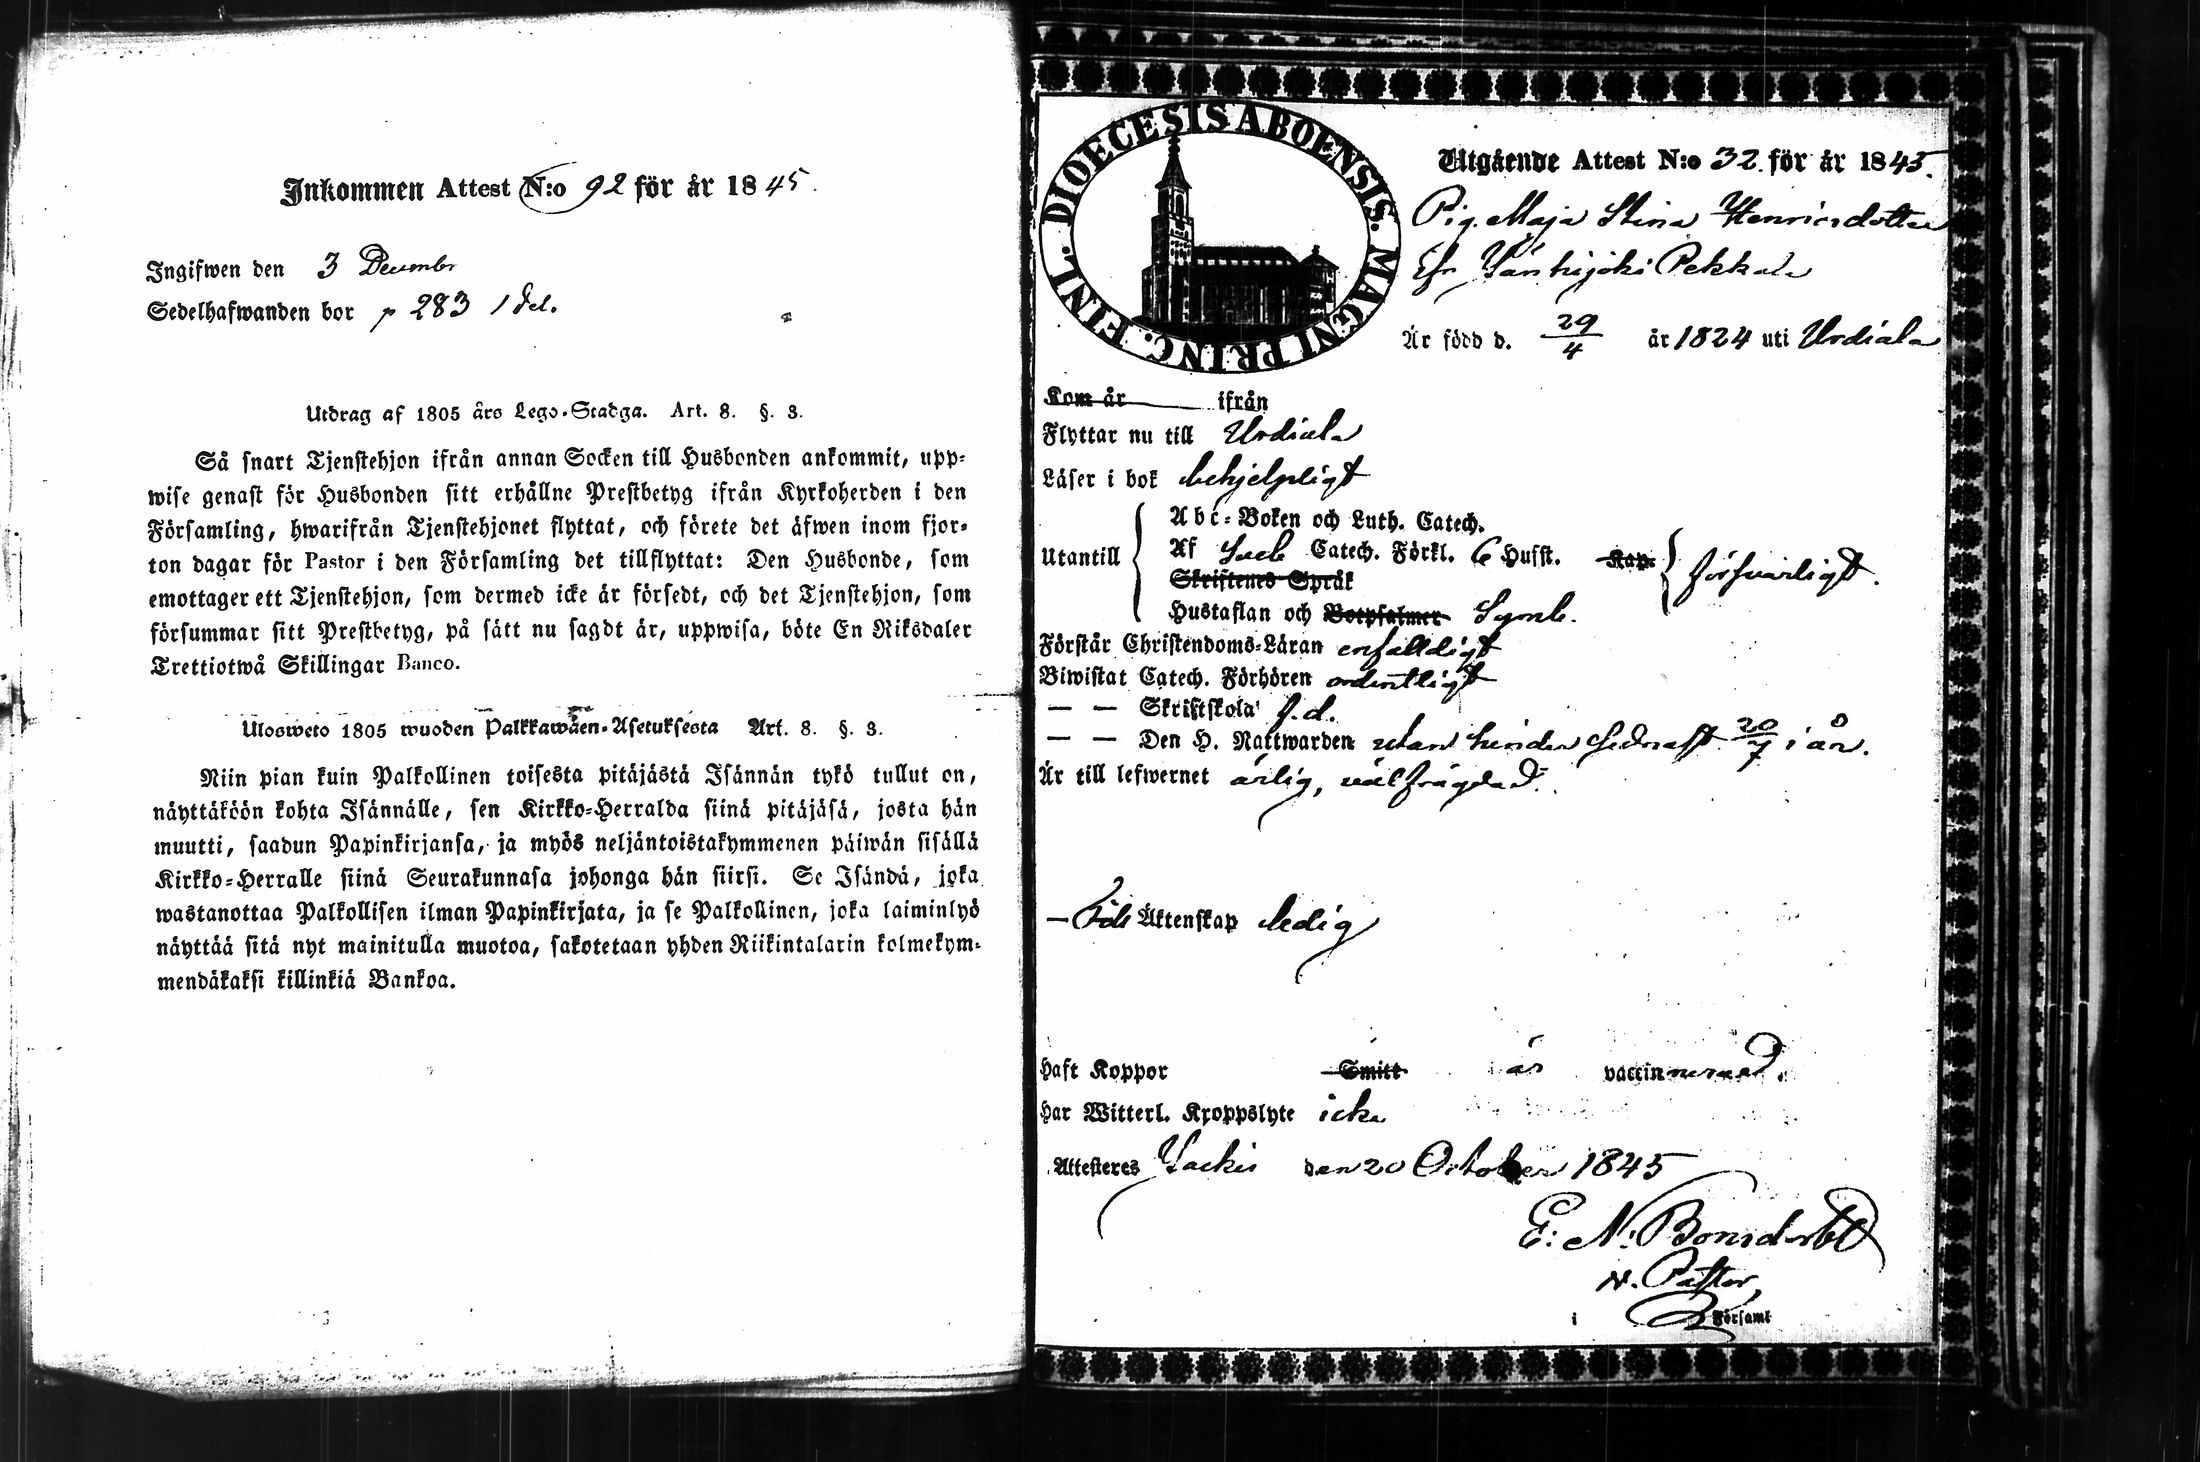 Inkommen Attest N:o 92 för år 1845.
Ingifwen den 3 Decembr
Sedelhafwanden bor p 283 1 del.
Utdrag af 1805 års Lego-Stadga. Art. 8. §. 3.
Så snart Tjenstehjon ifrån annan Socken till Husbonden ankommit, upp-
wise genast för Husbonden sitt erhållne Prestbetyg ifrån Kyrkoherden i den
Församling, hwarifrån Tjenstehjonet flyttat, och förete det äfwen inom fjor-
ton dagar för Pastor i den Församling det tillflyttat: Den Husbonde, som
emottager ett Tjenstehjon, som dermed icke är försedt, och det Tjenstehjon, som
försummar sitt Prestbetyg, på sätt nu sagdt är, uppwisa, böte En Riksdaler
Trettiotwå Skillingar Banco.
Ulosweto 1805 wuoden Palkkawäen-Asetuksesta Art. 8. §. 3.
Niin pian kuin Palkollinen toisesta pitäjästä Isännän tykö tullut on,
näyttäköön kohta Isännälle, sen Kirkko-Herralda siinä pitäjäsä, josta hän
muutti, saadun Papinkirjansa, ja myös neljäntoistakymmenen päiwän sisällä
Kirkko-Herralle siinä Seurakunnasa johonga hän siirsi. Se Isändä, joka
wastanottaa Palkollisen ilman Papinkirjata, ja se Palkollinen, joka laiminlyö
näyttää sitä nyt mainitulla muotoa, sakotetaan yhden Riikintalarin kolmekym-
mendäkaksi killinkiä Bankoa.
DIOECESIS ABOENSIS. MAGNI PRINC. FINL.
Utgående Attest N:o 32. för år 1845.
Pig. Maja Stina Henricsdotter
Pekkala
Är född d. 29/4 år 1824 uti Urdiala
Kom år ifrån
Flyttar nu till Urdiala
Läser i bok behjelpligt
Utantill
Abc-Boken och Luth. Catech.
Af Sveb Catech. Förkl. 6 Hufst. Kap. försvarligt.
Skriftenes Språk
Hustaflan och Botpsalmer Symb.
Förstår Christendoms-Läran enfalldigt
Biwistat Catech. Förhören ordentligt
— — Skriftskola d.
— — Den H. Nattwarden utan hinder sednast 20/7 i år.
Är till lefwernet ärlig, välfrägdad.
— Till Äktenskap ledig
Haft Koppor Smitt är vaccinnerad.
Har Witterl. Kroppslyte icke
Attesteres den 20 October 1845
E: N: Bonsdorff
v. Pastor
i Församl